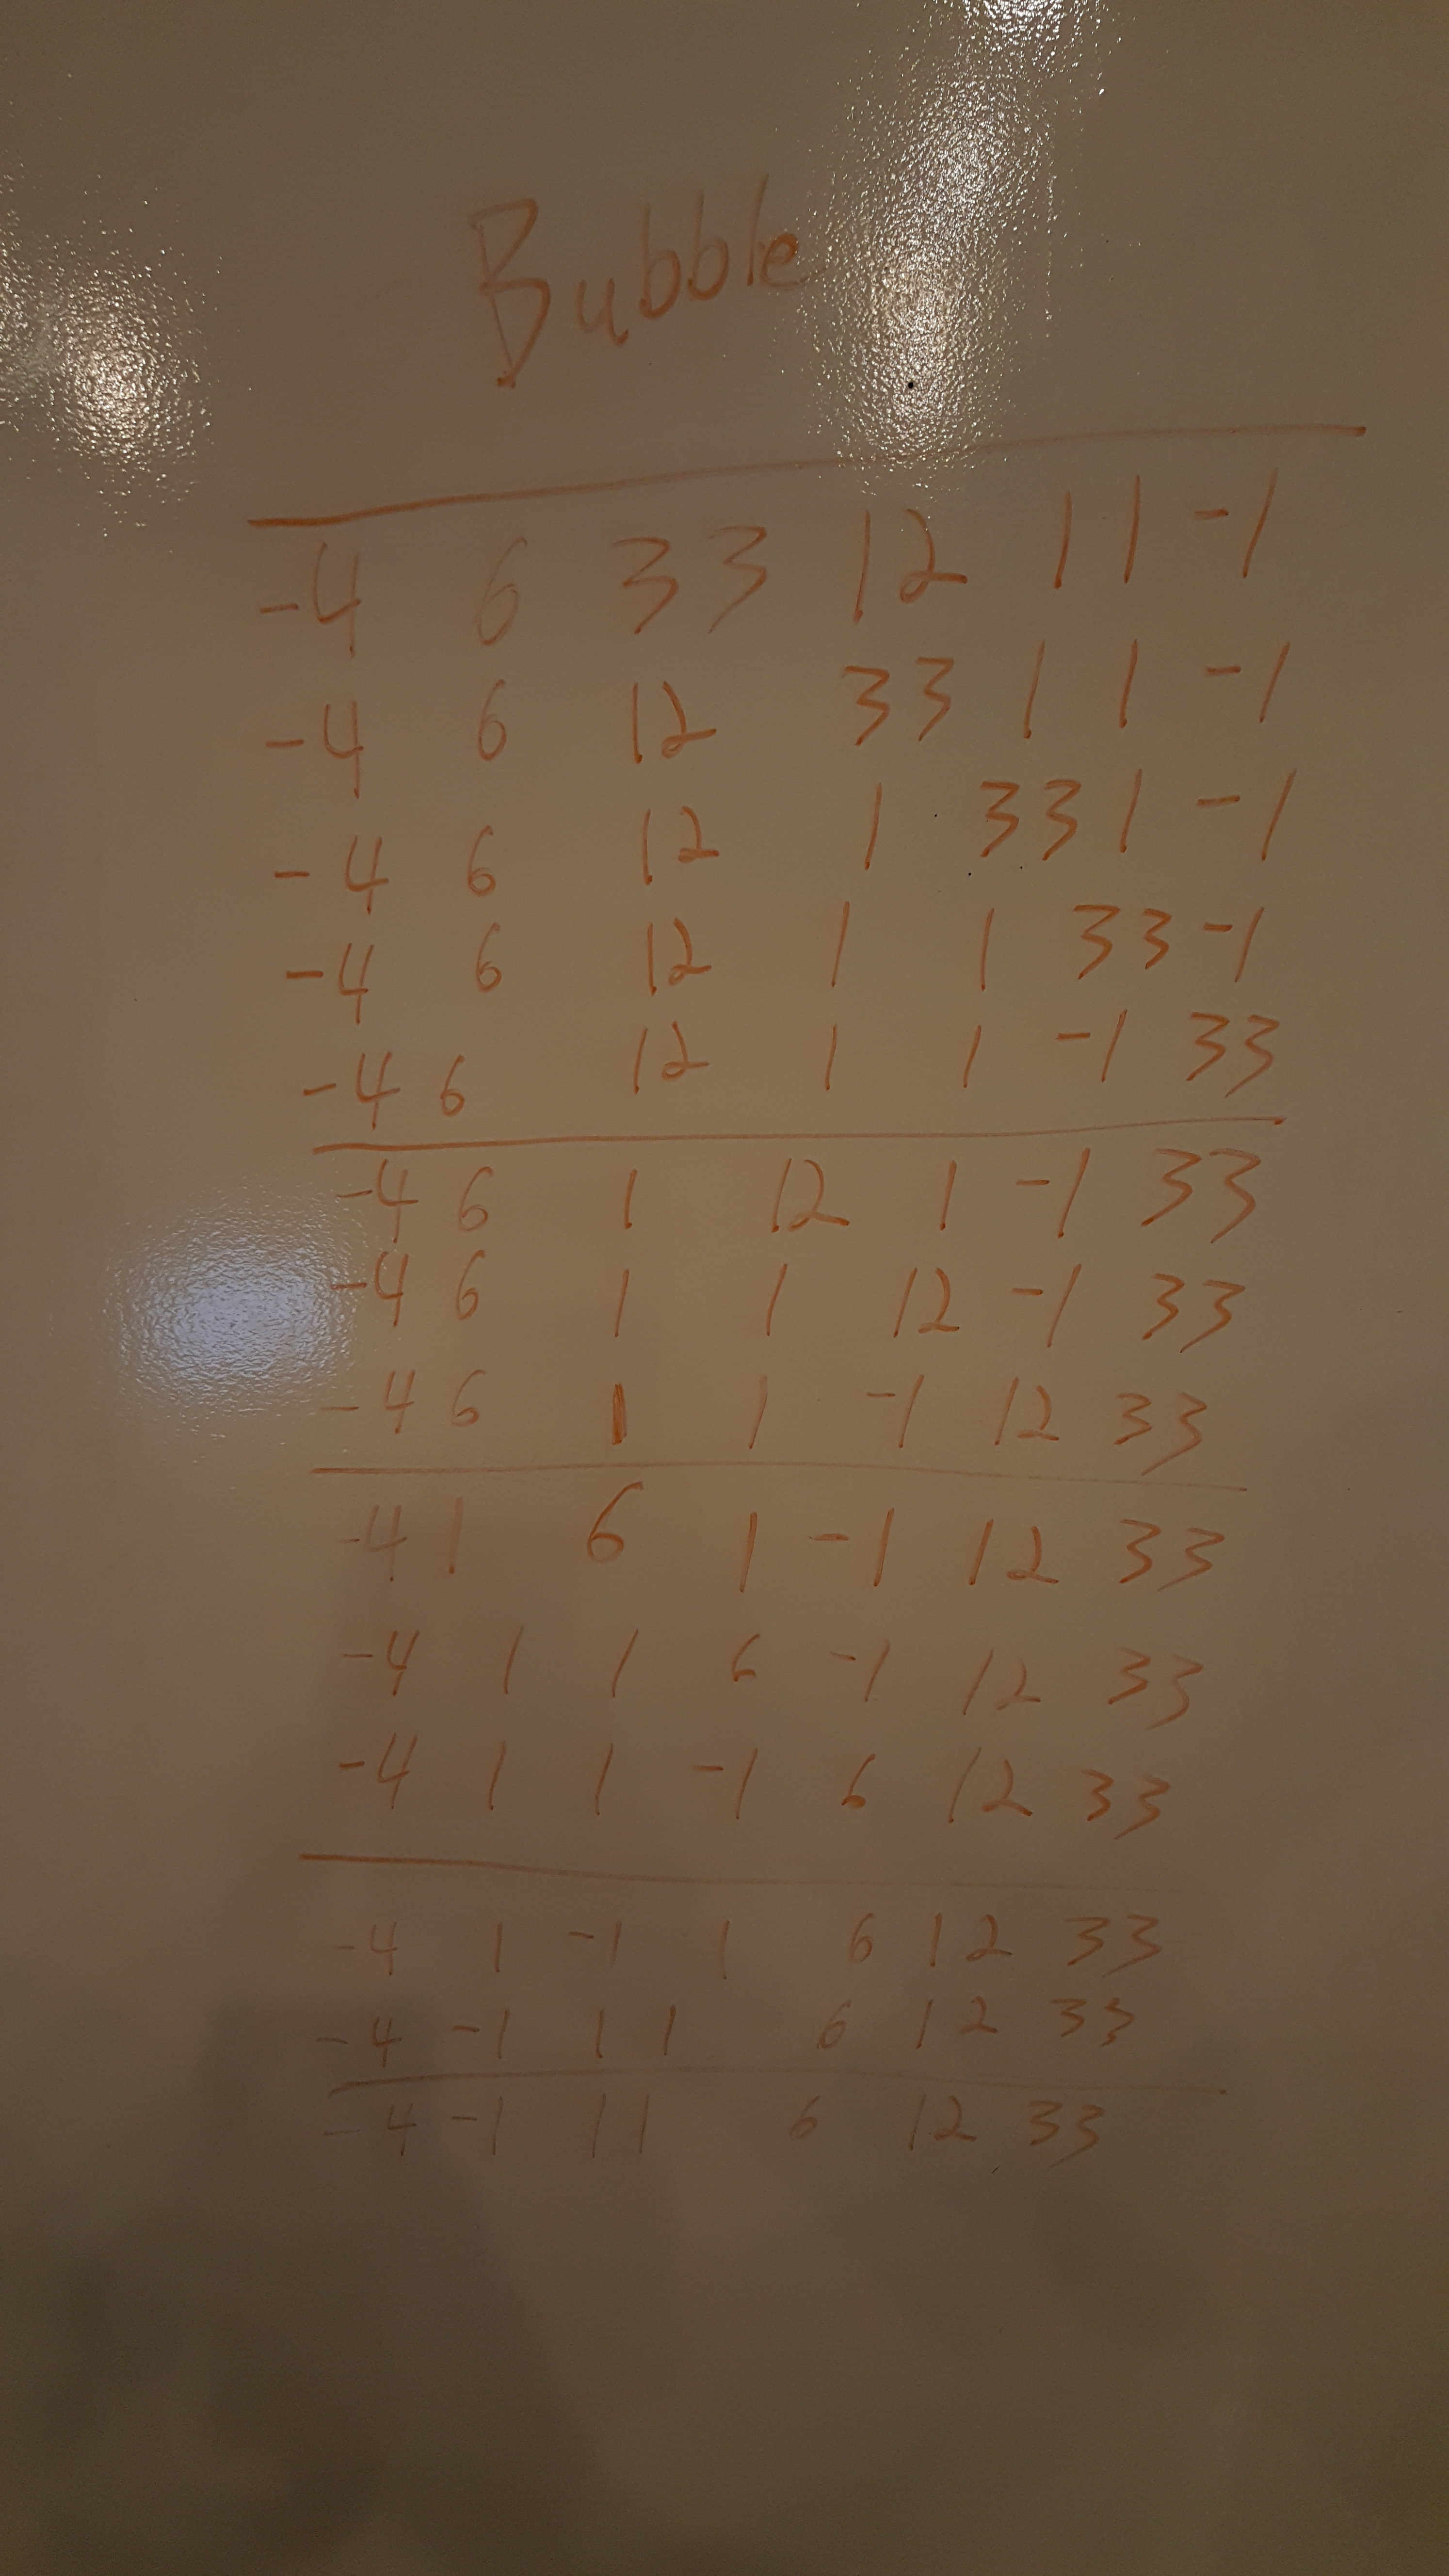 Bubble
-4 6 33 12 1 1 -1
-4 6 12 33 1 1 -1
-4 6 12 1 33 1 -1
-4 6 12 1 1 33 -1
-4 6 12 1 1 -1 33
-4 6 1 12 1 -1 33
-4 6 1 1 12 -1 33
-4 6 1 1 -1 12 33
-4 1 6 1 -1 12 33
-4 1 1 6 -1 12 33
-4 1 1 -1 6 12 33
-4 1 -1 1 6 12 33
-4 -1 1 1 6 12 33
-4 -1 1 1 6 12 33